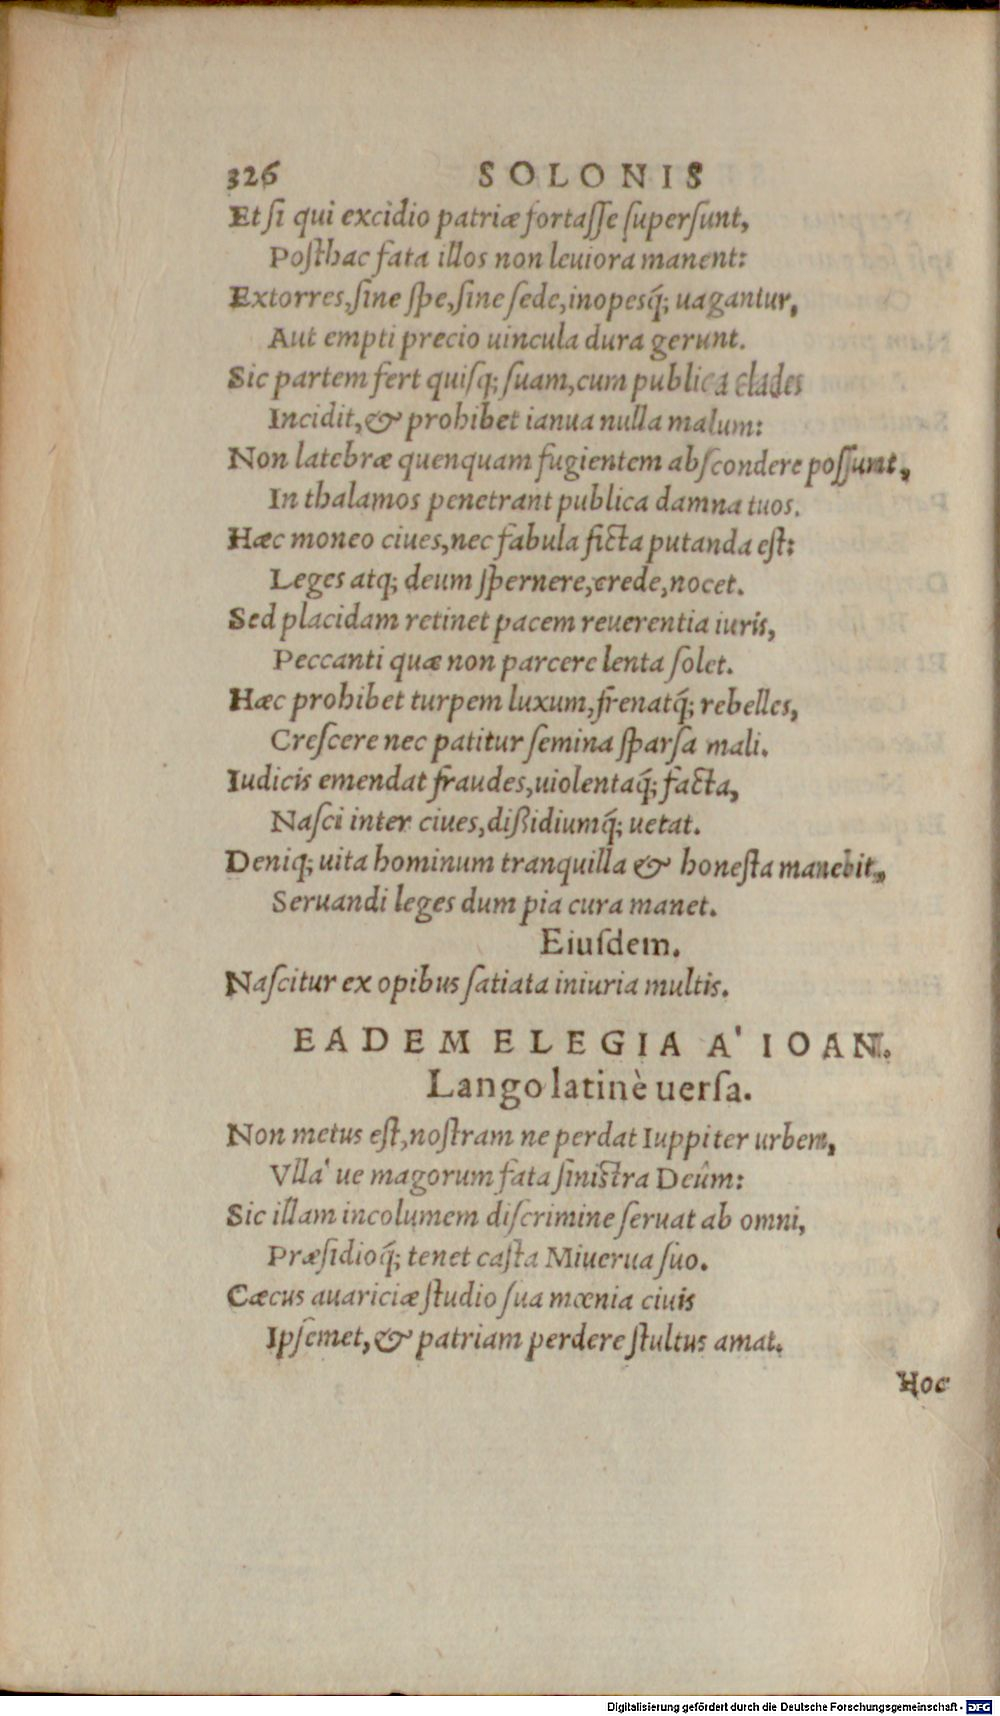 326 SOLONIS
Et ſi qui excidio patriæ fortaſſe ſuperſunt,
Poſthac fata illos non leuiora manent:
Extorres, ſine ſpe, ſine ſede, inopesq́; uagantur,
Aut empti precio uincula dura gerunt.
Sic partem fert quiſq; ſuam, cum publica clades
Incidit, & prohibet ianua nulla malum:
Non latebræ quenquam fugientem abſcondere poſſunt,
In thalamos penetrant publica damna tuos.
Hæc moneo ciues, nec fabula ficta putanda eſt:
Leges atq; deum ſpernere, crede, nocet.
Sed placidam retinet pacem reuerentia iuris,
Peccanti quæ non parcere lenta ſolet.
Hæc prohibet turpem luxum, frenatq́; rebelles,
Creſcere nec patitur ſemina ſparſa mali.
Iudicis emendat fraudes, uiolentaq́; facta,
Naſci inter ciues, dißidiumq́; uetat.
Deniq; uita hominum tranquilla & honeſta manebit,
Seruandi leges dum pia cura manet.
Eiuſdem.
Naſcitur ex opibus ſatiata iniuria multis.
EADEM ELEGIA A' IOAN.
Lango latinè uerſa.
Non metus eſt, noſtram ne perdat Iuppiter urbem,
Vlla' ue magorum fata ſiniſtra Deûm:
Sic illam incolumem diſcrimine ſeruat ab omni,
Præſidioq́; tenet caſta Miuerua ſuo.
Cæcus auariciæ ſtudio ſua mœnia ciuis
Ipſemet, & patriam perdere ſtultus amat.
Hoc
Digitalisierung gefördert durch die Deutsche Forschungsgemeinschaft - DFG